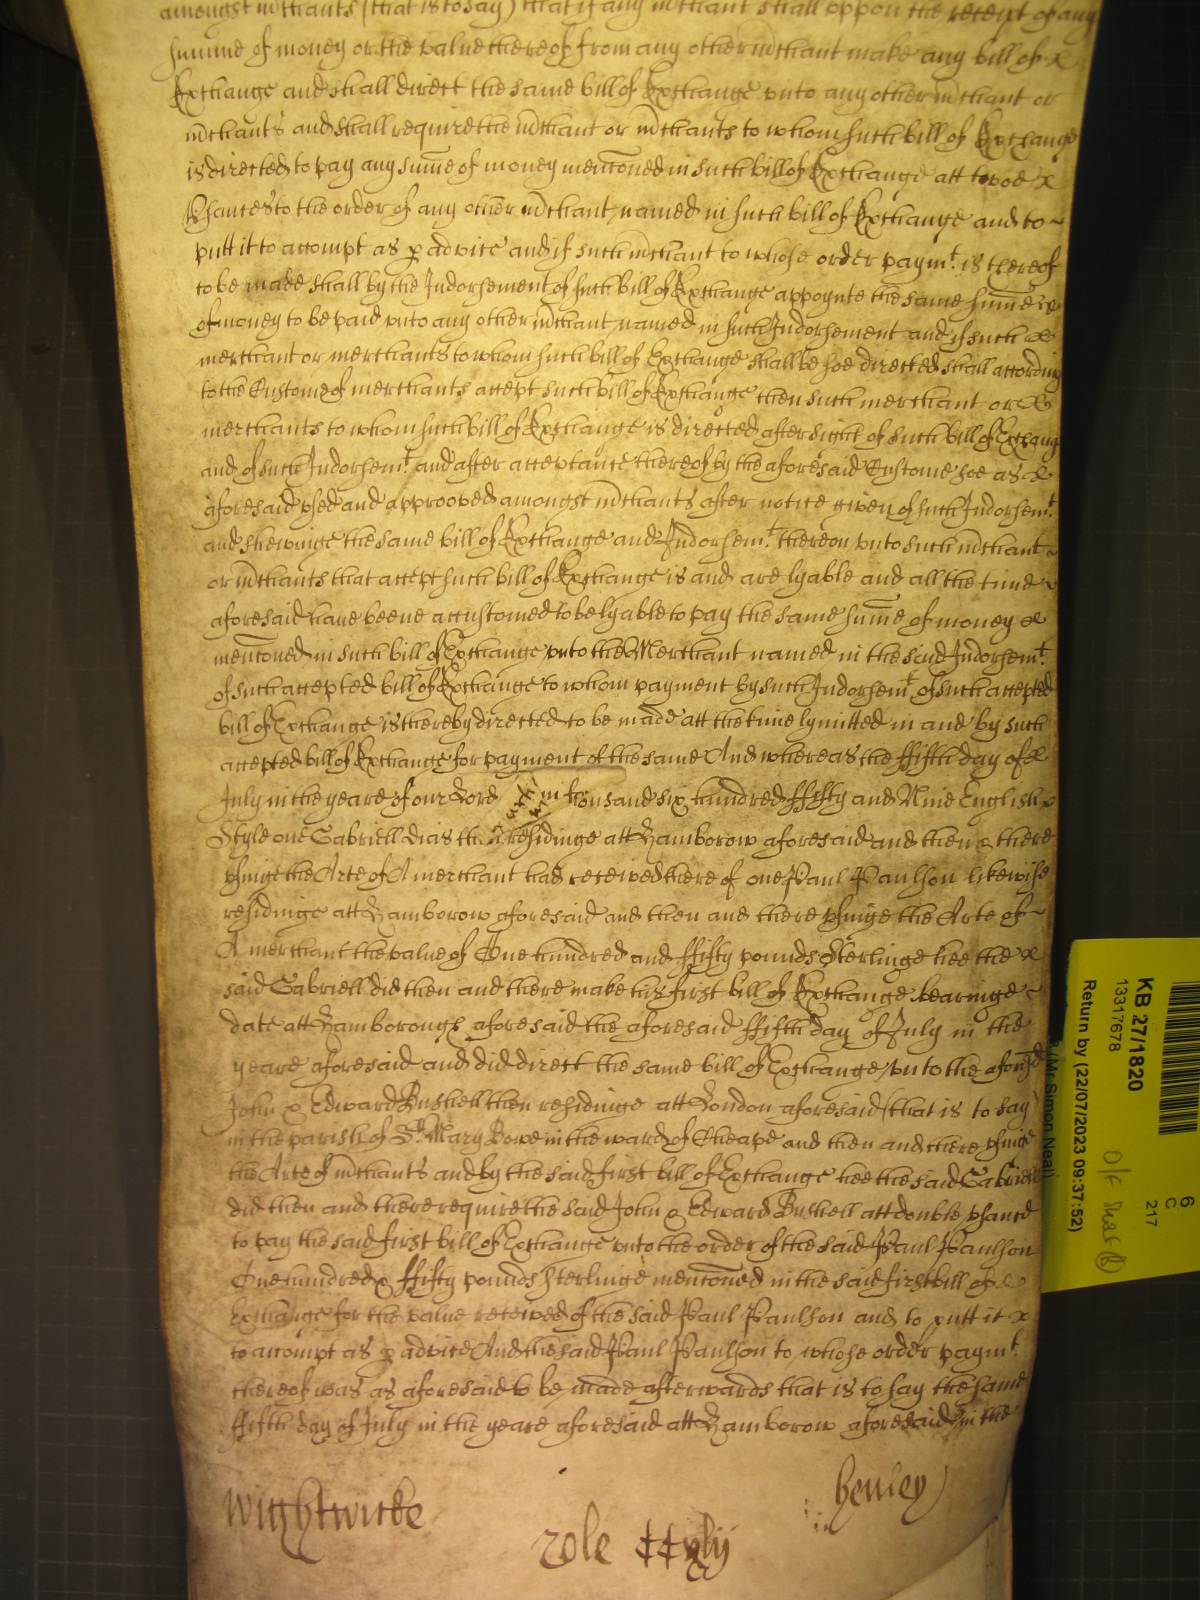 amongst mchants (that is to say) that if any mchant shall uppon the receipt of any
summe of money or the value thereof from any other mchant make any bill of x
Exchange and shall direct the same bill of Exchange vnto any other mchant or
mchants and shall require the mchant or mchants to whom such bill of Exchange
is directed to pay any sume of money menconed in such bill of Exchange att x
vsances to the order of any other mchant named in such bill of Exchange and to
putt it to accompt as p advice and if such mchant to whose order paymt. is thereof
to be made shall by the Indorsement of such bill of Exchange appoynte the same summe
of money to be paid vnto any other mchant named in such Indorsement and if such
merchant or merchants to whom such bill of Exchange shall be soe directed shall according
to the Custome of merchants accept such bill of Exchange then such merchant or
merchants to whom such bill of Exchange is directed after sight of such bill of Exchang
and of such Indorsemt. and after acceptance thereof by the aforesaid Custome soe as
aforesaid vsed and approoved amongst mchants after notice given of such Indorsemt.
and shewinge the same bill of Exchange and Indorsemt. thereon vnto such mchant
or mchants that accept such bill of Exchange is and are lyable and all the time
aforesaid haue beene accustomed to be lyable to pay the same sume of money
menconed in such bill of Exchange vnto the Merchant named in the said Indorsemt.
of such accepted bill of Exchange to whom payment by such Indorsemt. of such accepted
bill of Exchange is thereby directed to be made att the time lymitted in and by such
accepted bill of Exchange for payment of the same And whereas the ffifth day of
July in the yeare of our Lord thousand six hundred ffifty and Nine English
Style one Gabriell Dias then residinge att Hamborow aforesaid and then & there
vsinge the Arte of A merchant had received there of one Paul Paulson likewise
residinge att Hamborow aforesaid and then and there vsinge the Arte of
A merchant the value of One hundred and ffifty pounds Sterlinge hee the x
said Gabriell did then and there make his first bill of Exchange bearinge
date att Hamborough aforesaid the aforesaid ffifth day of July in the
yeare aforesaid and did direct the same bill of Exchange vnto the aforesd
John & Edward Bushell then residinge att London aforesaid (that is to say
in the parish of St. Mary Bowe in the ward of Cheape and then and there vsinge
the Arte of mchants and by the said first bill of Exchange hee the said Gabriell
did then and there require the said John & Edward Bushell att double vsance
to pay the said first bill of Exchange vnto the order of the said Paul Paulson
One hundred & ffifty pounds Sterlinge menconed in the said first bill of
Exchange for the value received of the said Paul Paulson and to putt it x
to accompt as p advice And the said Paul Paulson to whose order paymt.
thereof was as aforesaid to be made afterwards that is to say the same
ffifth day of July in the yeare aforesaid att Hamborow aforesaid in the
Wightwicke
henley
role ccxlij
KB 27/1820
13317678
Return by (22/07/2023 09:37:52)
(Mr Simon Neal)
6
C
217